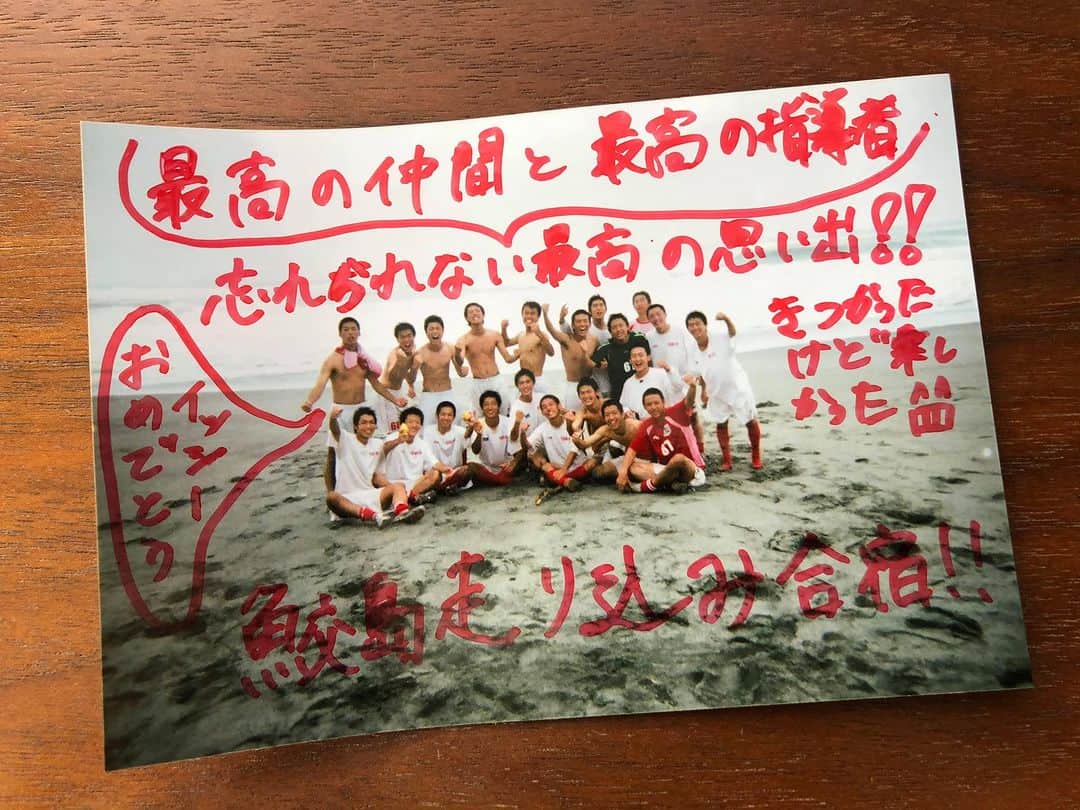 最高の仲間と最高の指導者
忘れられない最高の思い出!!
きつかった
けど楽し
かった
イッシー
おめでとう
鮫島走り込み合宿!!